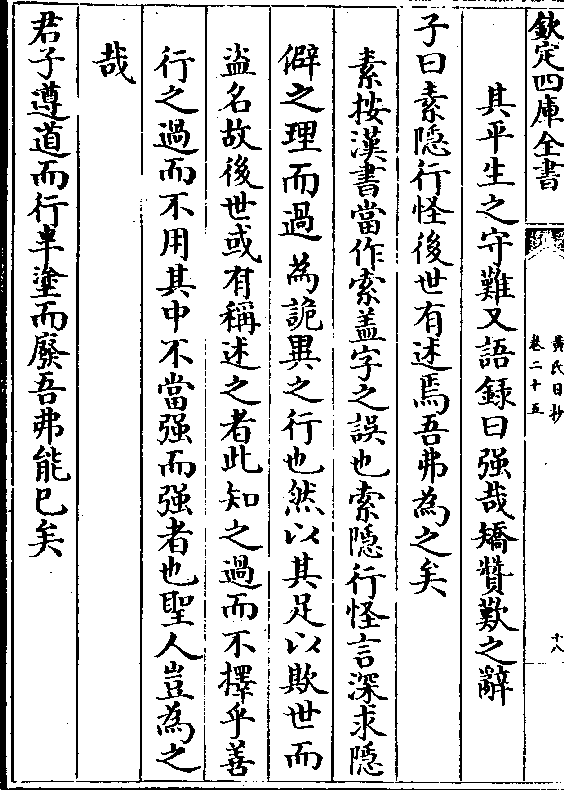 欽定四庫全書
黄氏日抄
卷二十五
十八
其平生之守難又語錄曰强哉矯贊歎之辭
子曰素隠行怪後世有述焉吾弗為之矣
素按漢書當作索盖字之誤也索隠行怪言深求隠
僻之理而過為詭異之行也然以其足以欺世而
盗名故後世或有稱述之者此知之過而不擇乎善
行之過而不用其中不當强而强者也聖人豈為之
哉
君子遵道而行半塗而廢吾弗能已矣